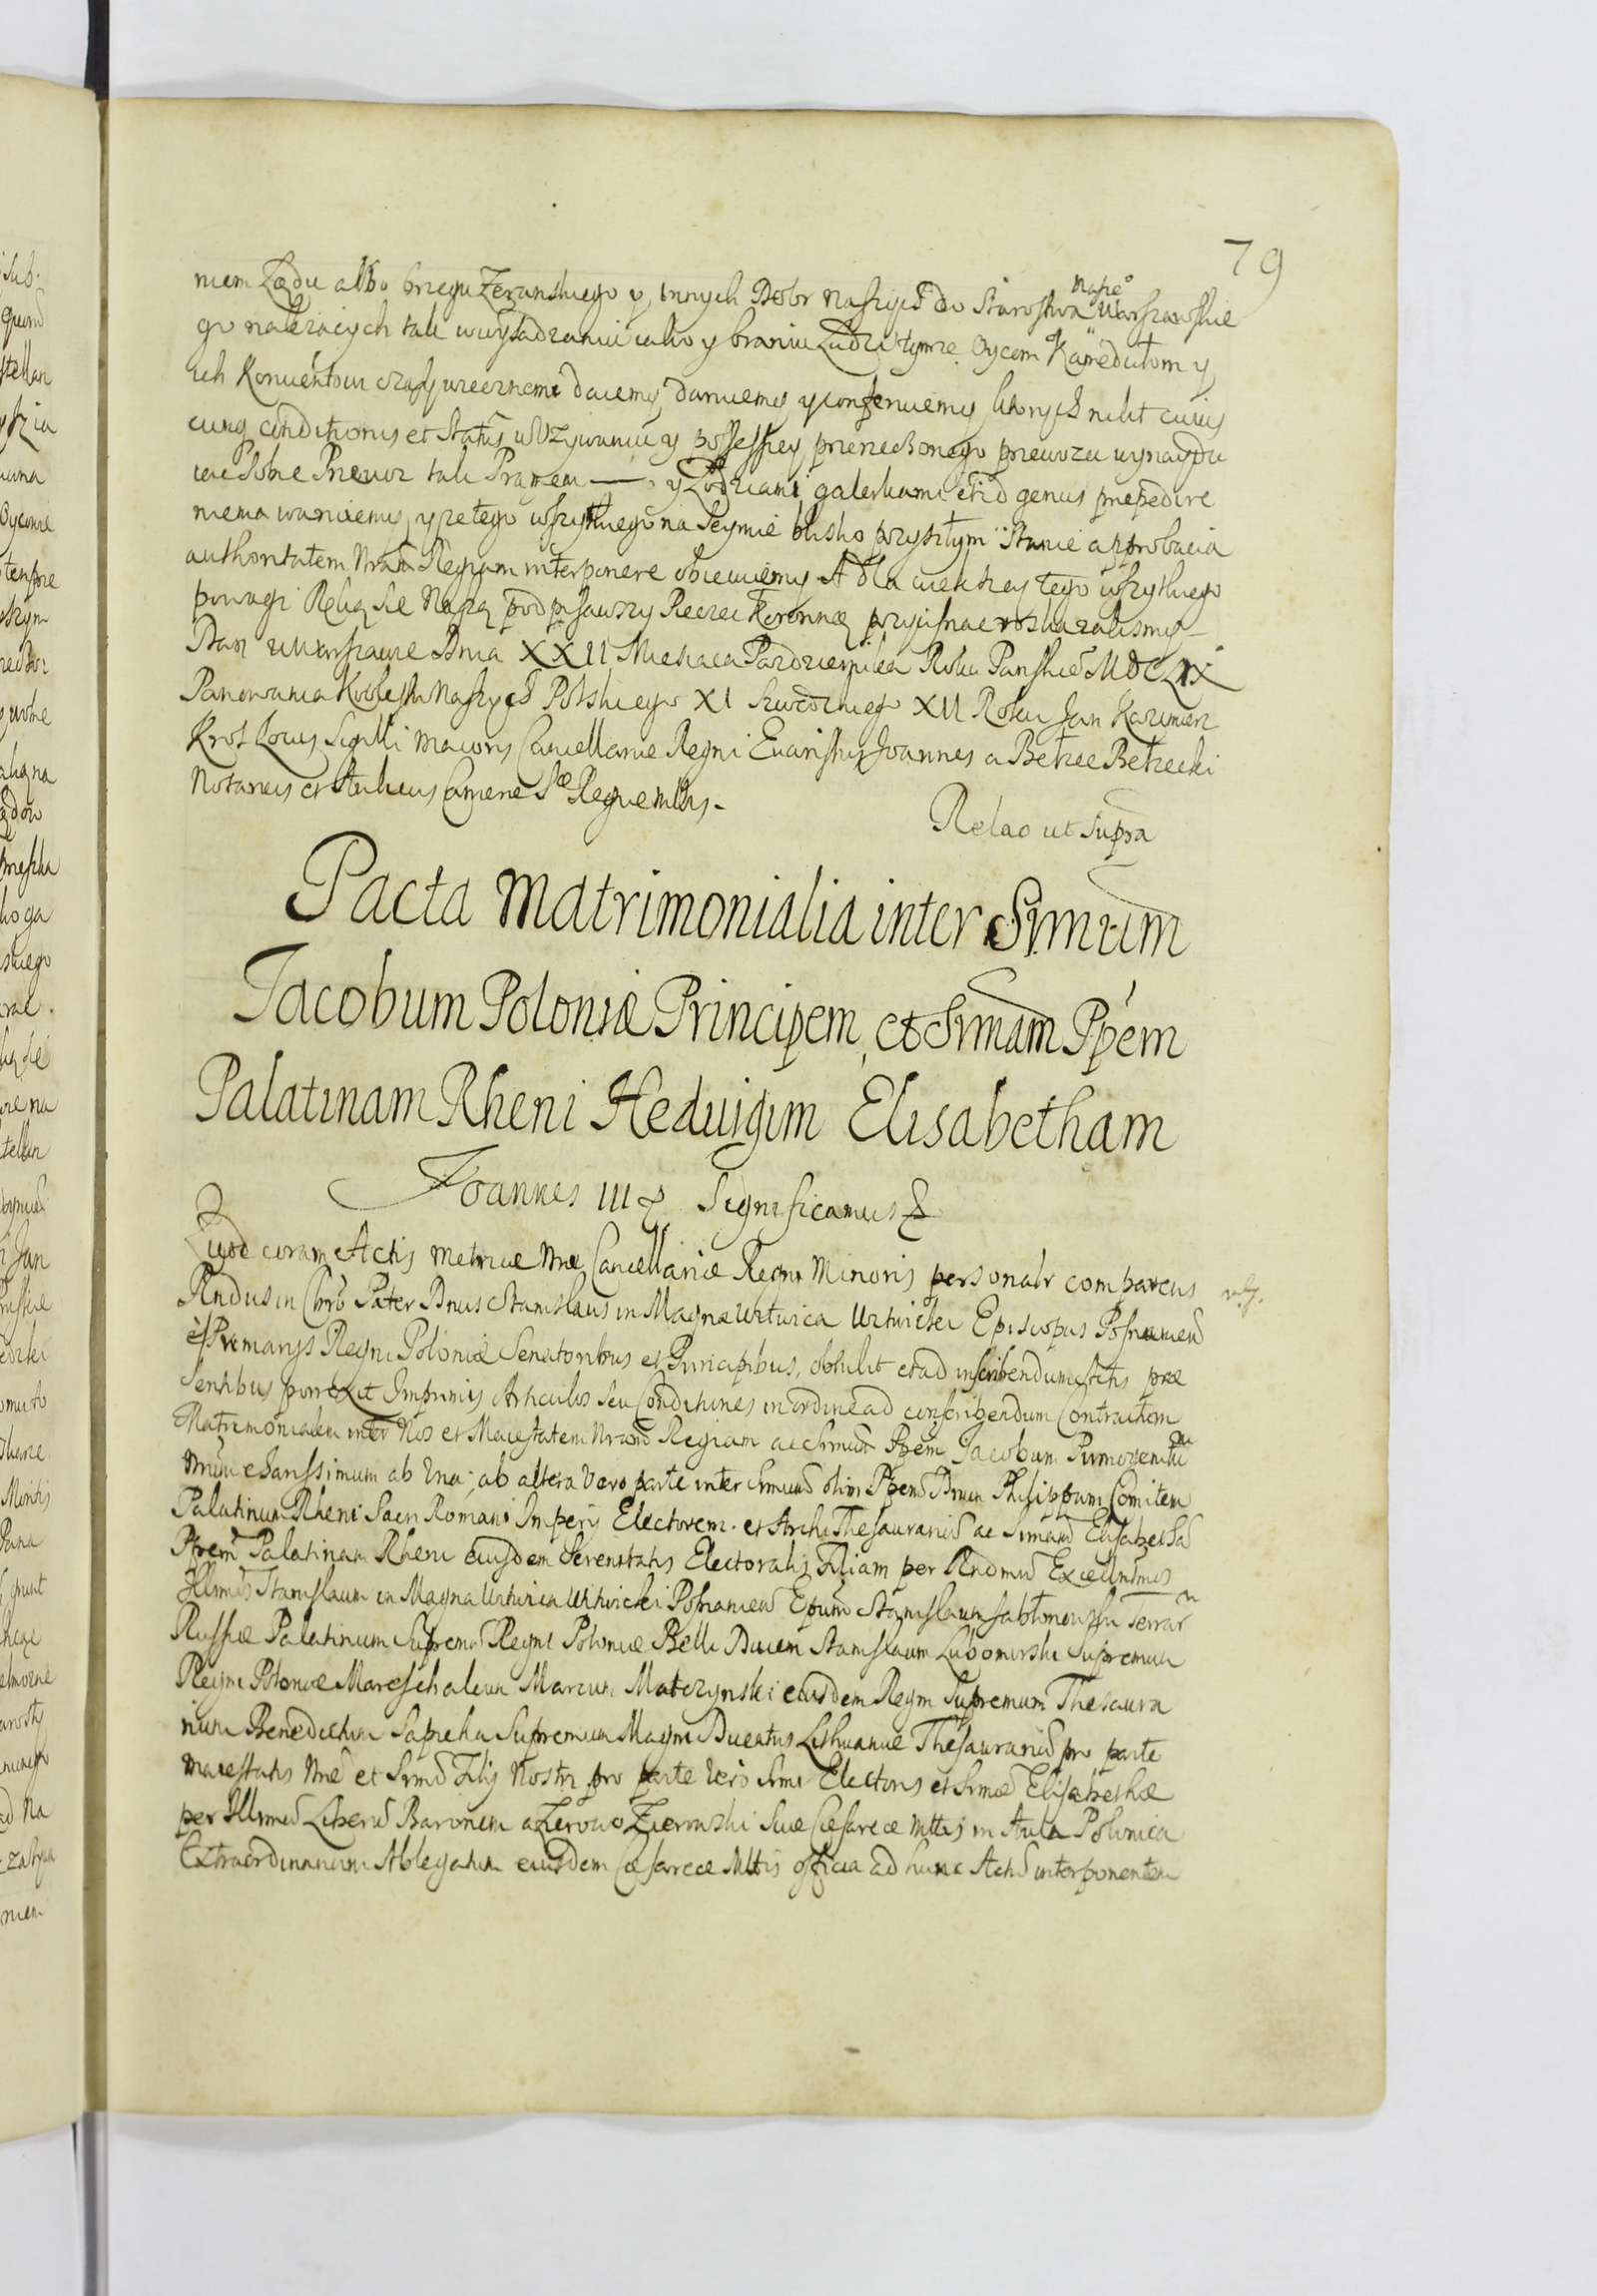 79
niem Lądu albo brzegu Zeranskiego y innych Dobr naszych do Starostwa nasze̊ Warszawskie
go nalezących tak w wysadzaniu iako y braniu Ludzi tymze Oycom Kamedułom y
ich Konwentowi czasy wiecznemi daiemy, daruiemy y conferuiemy ktorych nikt cuius
cunq conditionis et Status w Uzywaniu y possessiey przerzeczonego przewozu wynaydu
iące Sobie Przewoz tak Pramem — y Łodziami galerkami et id genus præpedire
niema waruiemy, y ze tego wszytkiego na Seymie blisko przyszłym Stanie approbacia
authoritatem Nrãm Regiam interponere obiecuiemy A dla wiekszey tego wszytkiego
powagi Ręką Się Naszą podpisawszy Pieczęc Koronną przycisnąc roskazalismy –
Dan w Warszawie Dnia XXII Miesiąca Pazdziernika Roku Panskie̊ MDCLIX
Panowania Krolestw Naszych Polskiego XI Szwedzkiego XII Roku Jan Kazimierz
Krol Locus Sigilli Maioris Cancellariæ Regni Evaristus Joannes a Bełzec Bełzecki
Notarius et Aulicus Cameræ Sæ Regiæ Mttis –
Relao ut Supra
Pacta Matrimonialia inter Srmum
Jacobum Poloniæ Principem, et Srmam Ppem
Palatinam Rheni Heduigim Elisabetham
Joannes III & Significamus &
Quod coram Actis Metricæ Nræ Cancellariæ Regni Minoris personalr comparens
Rndus in Chro Pater Dnus Stanislaus in Magna Witwica Witwicki Episcopus Posnanien
è Primarys Regni Poloniæ Senatoribus et Principibus, obtulit et ad inscribendum Actis præ
sentibus porrexit Imprimis Articulos Seu Conditiones in ordine ad conscribendum Contractum
Matrimonialem inter Nos et Maiestatem Nram Regiam ac Srmum Ppem Jacobum Primogenitu
Nrum charissimum ab Una; ab altera Vero parte inter Srmum olim Ppem Dnum Philippum Comitem
Palatinum Rheni Sacri Romani Impery Electorem et Archi Thesaurarium ac Srmam Elisabetha
Ppem Palatinam Rheni eiusdem Serenitatis Electoralis Filiam per Rndmu Excellntmos
Illmos Stanislaum in Magna Witwica Witwicki Posnanien Epum Stanislaum Jabłonowski Terrar
Russiæ Palatinum Supremu Regni Poloniæ Belli Ducem Stanislaum Lubomirski Supremum
Regni Poloniæ Mareschalcum Marcum Matczynski eiusdem Regni Supremum Thesaura
rium Benedictum Sapieha Supremum Magni Ducatus Lithuaniæ Thesaurariu pro parte
Maiestatis Nræ et Srmi Filij Nostri pro parte Vero Srmi Electoris et Srmæ Elisabethæ
per Illmum Liberu Baronem a Zierowo Zierowski Suæ Cæsareæ Mttis in Aula Polonica
Extraordinarium Ablegatum eiusdem Cæsareæ Mttis officia ad hunc Actu interponentem